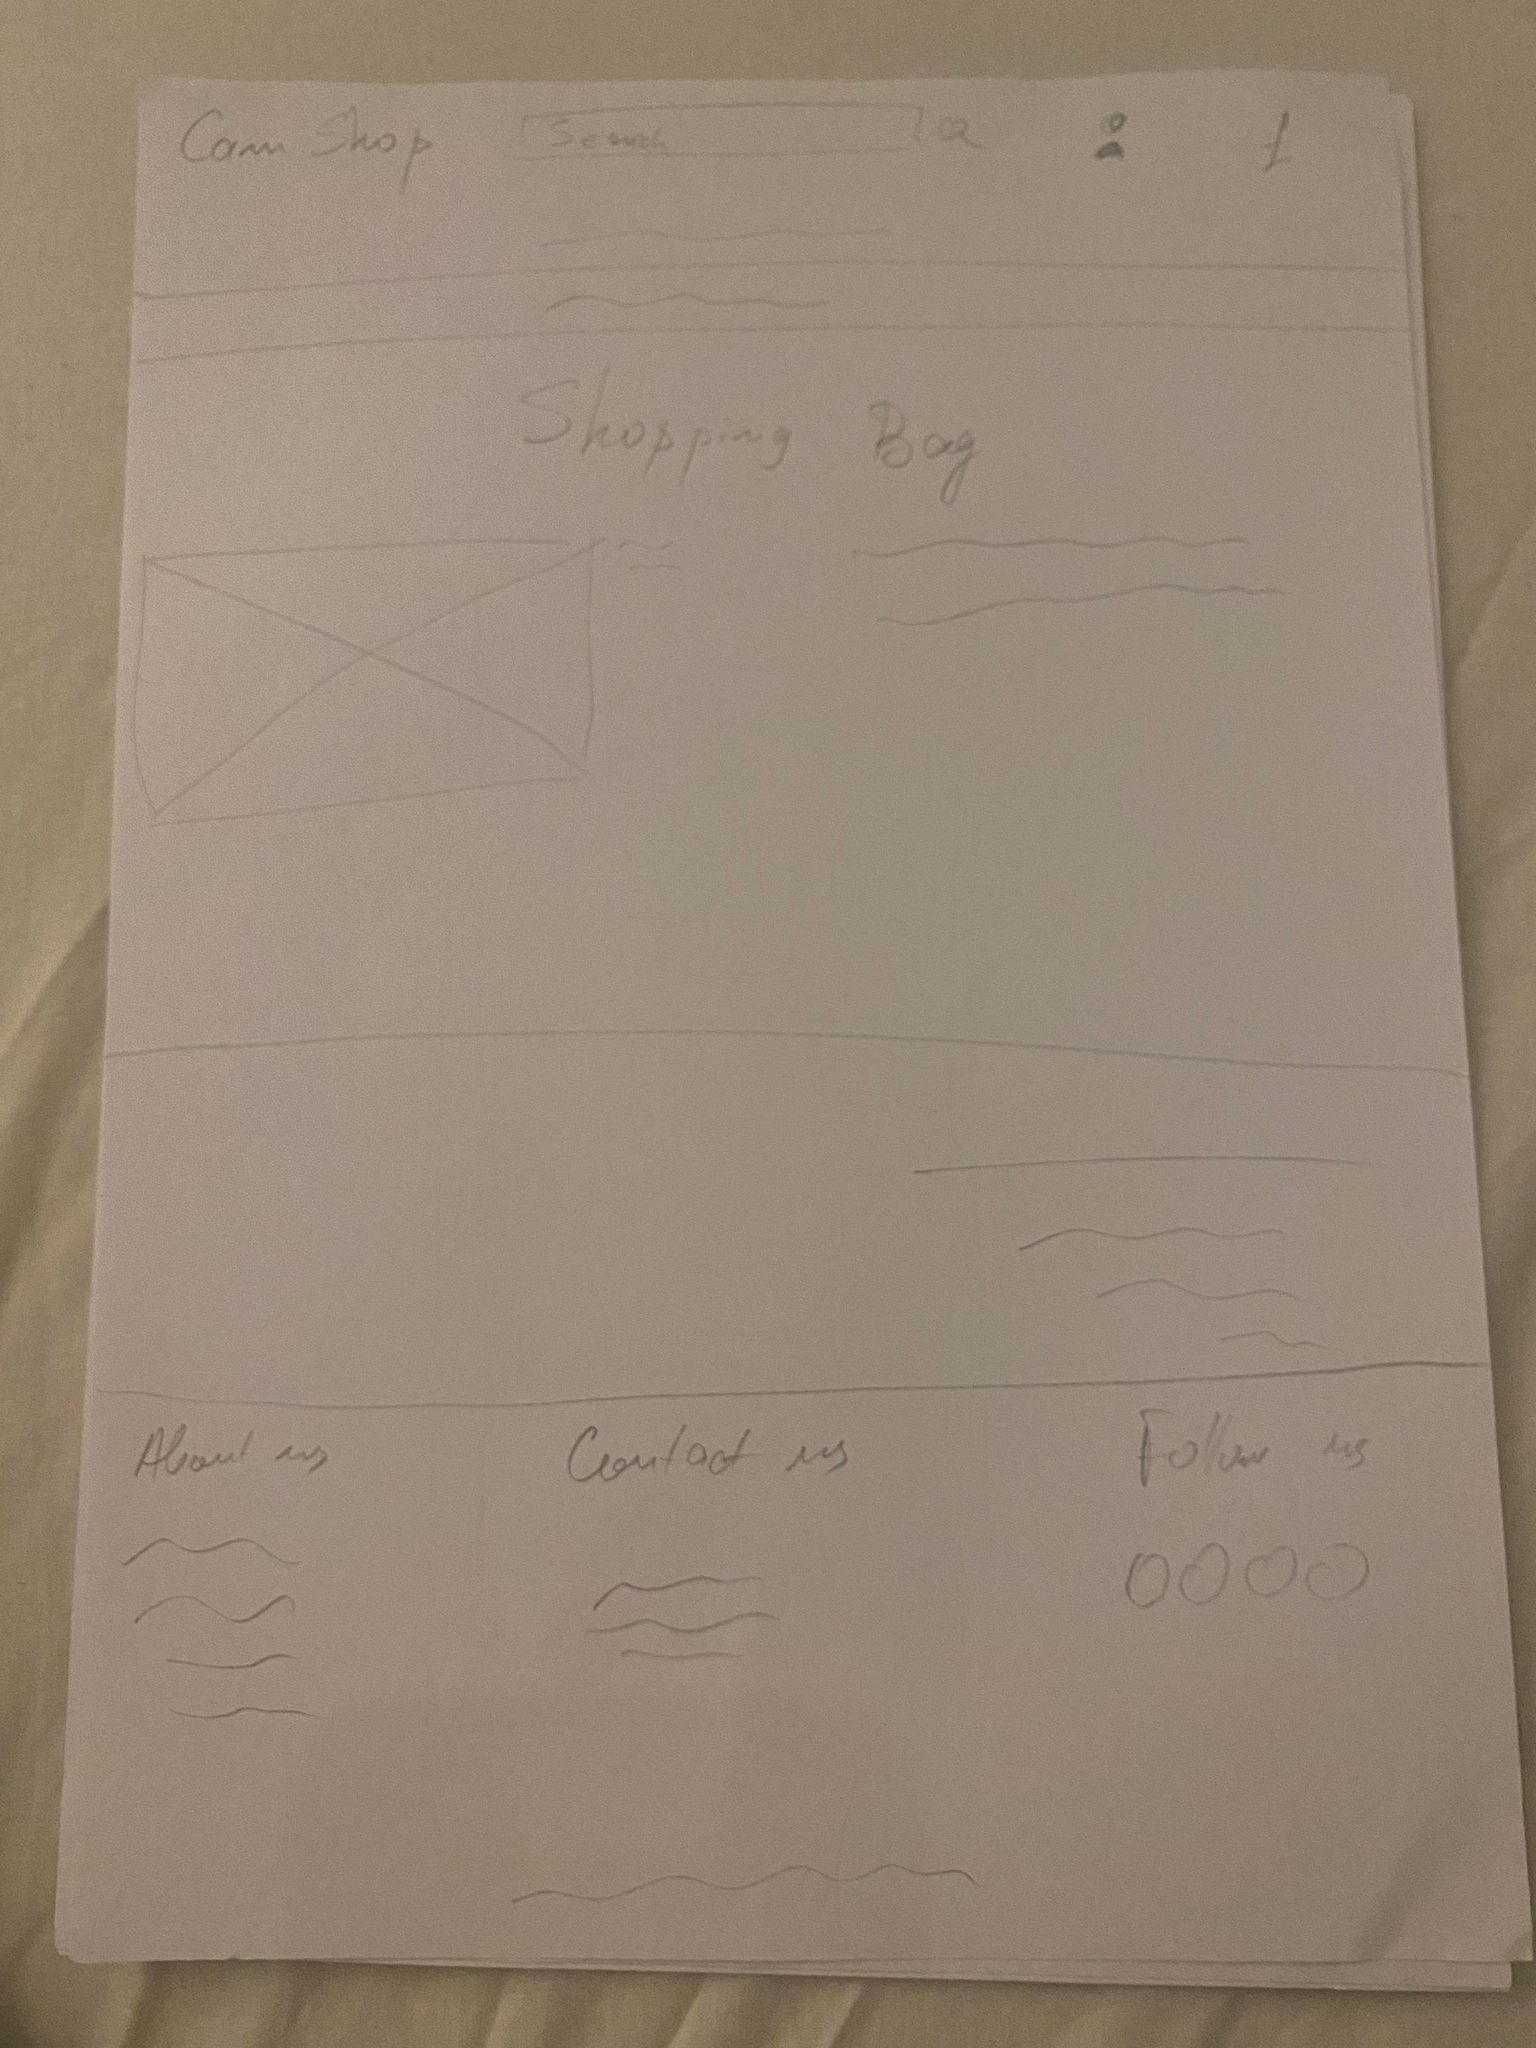 Cam Shop Search
Shopping Bag
About us Contact us Follow us